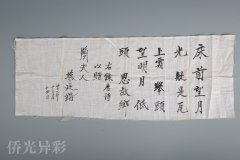 床前望月
光疑是瓦
上霜舉頭
望明月低
頭思故鄉
右錄唐詩
以贈
關夫人
侨光异彩